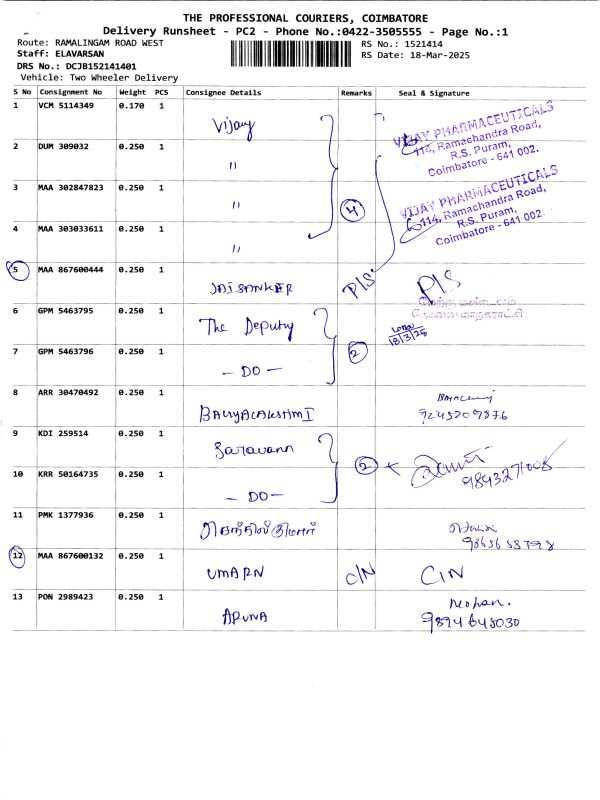 THE PROFESSIONAL COURIERS, COIMBATORE
Delivery Runsheet - PC2 - Phone No.:0422-3505555 - Page No.:1
Route: RAMALINGAM ROAD WEST
RS No.: 1521414
Staff: ELAVARSAN
RS Date: 18-Mar-2025
DRS No.: DCJB152141401
Vehicle: Two Wheeler Delivery
S No Consignment No Weight PCS Consignee Details Remarks Seal & Signature
1 VCM 5114349 0.170 1 Vijay
VIJAY PHARMACEUTICALS
114, Ramachandra Road,
R.S. Puram,
Coimbatore - 641 002.
2 DUM 309032 0.250 1 "
3 MAA 302847823 0.250 1 " 4
VIJAY PHARMACEUTICALS
114, Ramachandra Road,
R.S. Puram,
Coimbatore - 641 002.
4 MAA 303033611 0.250 1 "
5 MAA 867600444 0.250 1 JAISANKER P/S P/S
6 GPM 5463795 0.250 1 The Deputy
18/3/25
7 GPM 5463796 0.250 1 - DO - 2
8 ARR 30470492 0.250 1
9245209876
9 KDI 259514 0.250 1 Saravann 2
9843271008
10 KRR 50164735 0.250 1 - DO -
11 PMK 1377936 0.250 1 செந்தில்குமார்
12 MAA 867600132 0.250 1 UMARN C/N C/N
13 PON 2989423 0.250 1 ARUNA Mohan.
9894648030